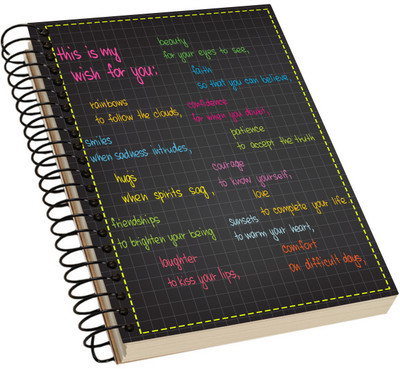 this is my
wish for you:
beauty
for your eyes to see,
faith
so that you can believe,
rainbows
to follow the clouds,
confidence
for when you doubt,
smiles
when sadness intrudes,
patience
to accept the truth
hugs
when spirits sag,
courage
to know yourself,
love
to complete your life,
friendships
to brighten your being
sunsets
to warm your heart,
laughter
to kiss your lips,
comfort
on difficult days,